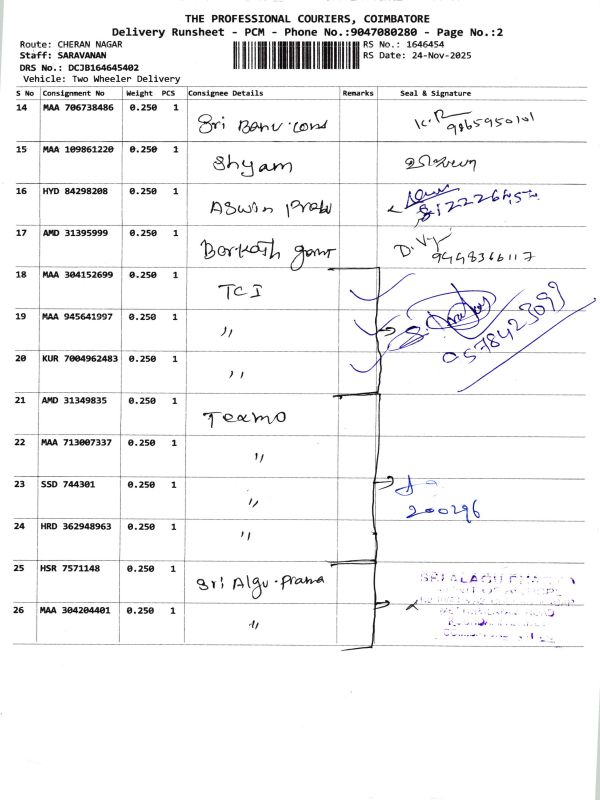 THE PROFESSIONAL COURIERS, COIMBATORE
Delivery Runsheet - PCM - Phone No.:9047080280 - Page No.:2
Route: CHERAN NAGAR
RS No.: 1646454
Staff: SARAVANAN
RS Date: 24-Nov-2025
DRS No.: DCJB164645402
Vehicle: Two Wheeler Delivery
S No Consignment No Weight PCS Consignee Details Remarks Seal & Signature
14 MAA 706738486 0.250 1 Sri Banu K.R
9865950101
15 MAA 109861220 0.250 1 Shyam
16 HYD 84298208 0.250 1 Aswin
17 AMD 31395999 0.250 1 D.
9448366117
18 MAA 304152699 0.250 1 TCI
19 MAA 945641997 0.250 1 "
20 KUR 7004962483 0.250 1 "
21 AMD 31349835 0.250 1 Texmo
22 MAA 713007337 0.250 1 "
23 SSD 744301 0.250 1 "
200296
24 HRD 362948963 0.250 1 "
25 HSR 7571148 0.250 1 Sri Algu
SRI ALAGU
26 MAA 304204401 0.250 1 "